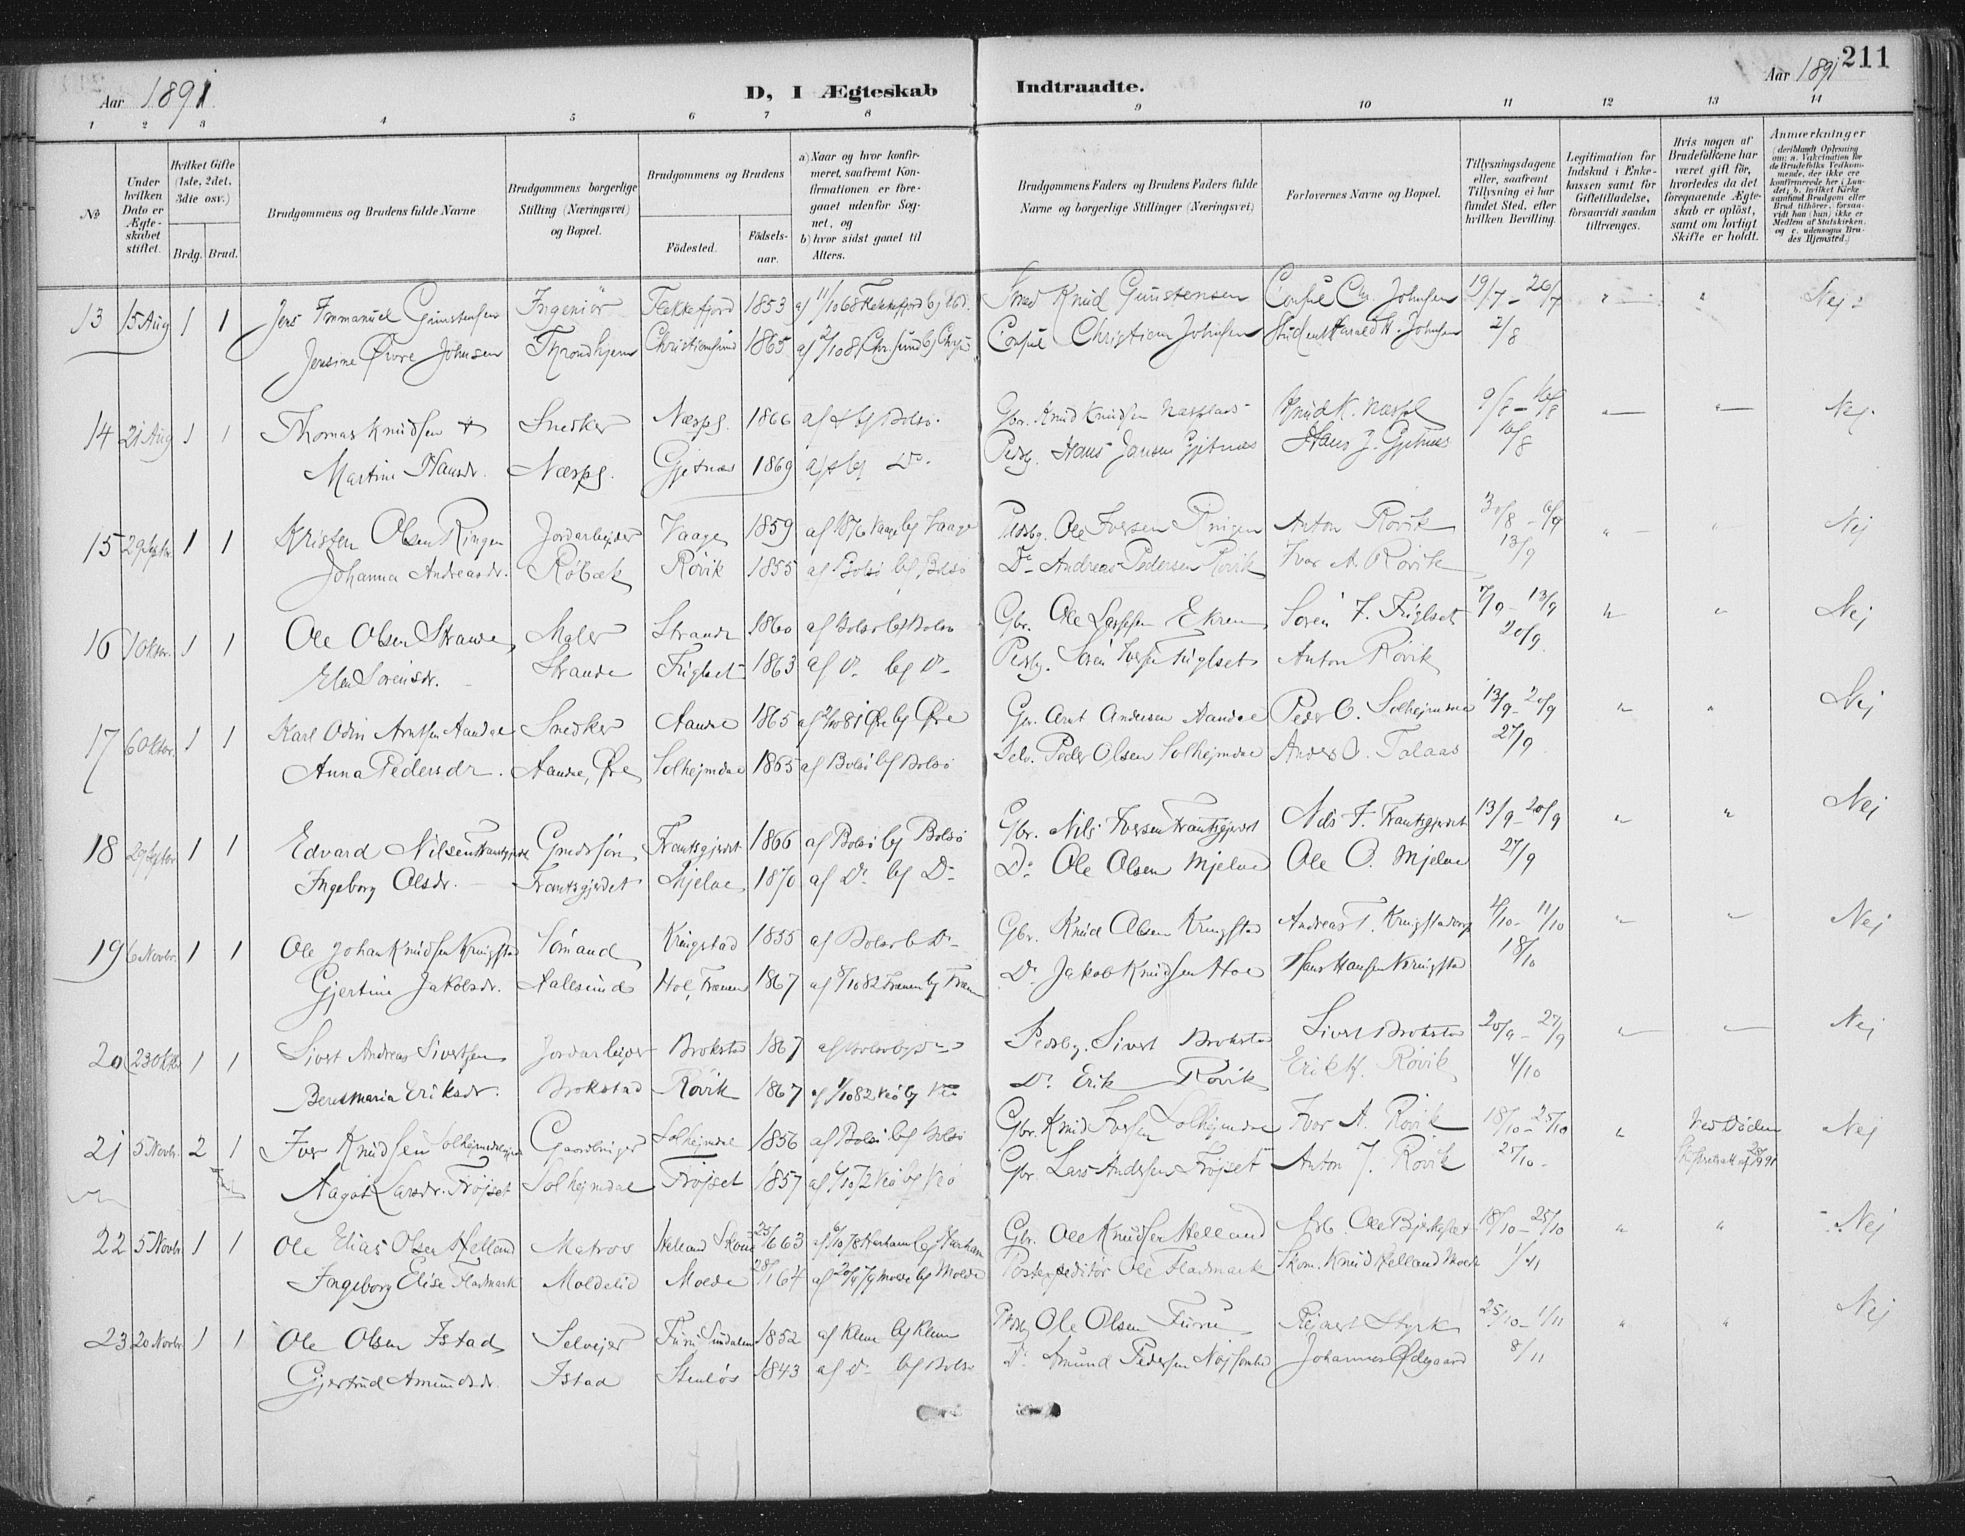 211
Aar 1891.
D, I Ægteskab Indtraadte.
Aar 1891
1 2 3 4 5 6 7 8 9 10 11 12 13 14
No
Under hvilken Dato er Ægteskabet stiftet.
Hvilket Gifte (1ste, 2det, 3die osv.)
Brdg. Brud.
Brudgommens og Brudens fulde Navne
Brudgommens borgerlige Stilling (Næringsvei) og Bopæl.
Brudgommens og Brudens
Fødested.
Fødsels-aar.
a) Naar og hvor konfirmeret, saafremt Konfirmationen er foregaaet udenfor Sognet, og
b) hvor sidst gaaet til Alters.
Brudgommens Faders og Brudens Faders fulde Navne og borgerlige Stillinger (Næringsvei)
Forlovernes Navne og Bopæl.
Tillysningsdagene eller, saafremt Tillysning ei har fundet Sted, efter hvilken Bevilling.
Legitimation for Indskud i Enkekassen samt for Giftetilladelse, forsaavidt saadan tiltrænges.
Hvis nogen af Brudefolkene har været gift før, hvorledes da det foregaaende Ægteskab er opløst, samt om lovligt Skifte er holdt.
Anmærkninger (deriblandt Oplysning om: a. Vakcination for de Brudefolks Vedkommende, der ikke ere konfirmerede her i Landet; b. hvilket Kirkesamfund Brudgom eller Brud tilhører, forsaavidt han (hun) ikke er Medlem af Statskirken, og c. udensogns Brudes Hjemsted.)
13 15 Aug 1 1 Jens Immanuel Gunstensen Ingeniør Flekkefjord 1853 a) 11/10 68 Flekkefjord b) Knud Gunstensen Consul Chr. Johnsen 19/7 - 26/7 " " Nej
Jensine Øvre Johnsen Throndhjem Christiansund 1865 Consul Christian Johnsen Student Harald H. Johnsen 2/8
14 21 Aug 1 1 Thomas Knudsen Snedker Næspl. 1866 a) & b) Bolsø. Gbr. Knud Knudsen Næspl. Knud K. Næspl 9/8 - 16/8 " " Nej.
Martine Hansdr. Næspl. Gjetnæs 1869 a) & b) Do. Pldsb. Hans Jansen Gjetnæs Hans J. Gjetnæs
15 29 Septbr. 1 1 Kristen Olsen Ringen Jordarbejder Vaage 1859 b) Vaage Pldsbg. Ole Iversen Ringen Anton Røvik 30/8 - 6/9 " " Nej
Johanna Andreasdr. Røbæk Røvik 1855 a) Bolsø b) Bolsø Do Andreas Pedersen Røvik Ivar A. Røvik 13/9
16 1 Oktbr. 1 1 Ole Olsen Strande Maler Strande 1860 a) Bolsø b) Bolsø Gbr. Ole Ekrem Søren I. Fuglset 7/9 - 13/9 " " Nej
Elen Sørensdr. Strande Fuglset 1863 a) Do b) Do Pldsbg. Søren Iversen Fuglset Anton Røvik 20/9
17 6 Oktbr. 1 1 Karl Odin Arntsen Aandal Snedker Aandal 1865 Øre b) Øre Gbr. Arnt Andersen Aandal Peder O. Solhejmdal 13/9 - 20/9 " " Nej
Anna Pedersdr. Aandal, Øre Solhejmdal 1865 a) Bolsø b) Bolsø Selv. Peder Olsen Solhejmdal Anders O. Talaas 27/9
18 29 Septbr 1 1 Edvard Nilsen Frantsgjerdet Gmdssøn Frantsgjerdet 1866 a) Bolsø b) Bolsø Gbr. Nils Iversen Frantsgjerdet Nils I. Frantsgjerdet 13/9 - 20/9 " " Nej
Ingeborg Olsdr. Frantsgjerdet Mjelve 1870 a) Do b) Do Do Ole Olsen Mjelve Ole O. Mjelve 27/9
19 6 Novbr. 1 1 Ole Johan Knudsen Kringstad Sømand Kringstad 1855 a) Bolsø b) Do Gbr. Knud Olsen Kringstad Andreas T. Kringstad 4/10 - 11/10 " " Nej
Gjertine Jakobsdr. Aalesund Hol, Frænen 1867 Frænen b) Fræn Do Jakob Knudsen Hol Hans Hansen Kringstad 18/10
20 23 Oktbr 1 1 Sivert Andreas Sivertsen Jordarbejder Brokstad 1867 a) Bolsø b) Do Pldsbg. Sivert Brokstad Sivert Brokstad 20/9 - 27/9 " " Nej
Beret Maria Eriksdr. Brokstad Røvik 1867 Veø b) Veø Do Erik Røvik Erik Røvik 4/10
21 5 Novbr. 2 1 Iver Knudsen Solhejmdal Gaardbruger Solhejmdal 1856 a) Bolsø b) Bolsø Gbr. Knud Iversen Solhejmdal Ivar A. Røvik 18/10 - 25/10 " Ved Døden Nej
Aagot Larsdr. Frøjset Solhejmdal Frøjset 1857 Veø b) Veø Gbr. Lars Andersen Frøjset Anton J. Røvik
22 5 Novbr 1 1 Ole Elias Olsen Helland Matros Helland 25/6 63 Harham b) Harham Gbr. Ole Knudsen Helland Ole Bjerkeset 18/10 - 25/10 " " Nej
Ingeborg Elise Fladmark Moldelid Molde 64 Molde b) Molde Postexpeditør Ole Fladmark Knud Helland Molde 1/11
23 20 Novbr 1 1 Ole Olsen Istad Selvejer Furu 1852 a) Kleve b) Kleve Pldsbg Ole Olsen Furu Rejnert Styrk 25/10 - 1/11 " " Nej
Gjertrud Amundsdr. Istad Stenløs 1843 a) Do b) Bolsø Do Amund Pedersen Johannes Ødegaard 8/11